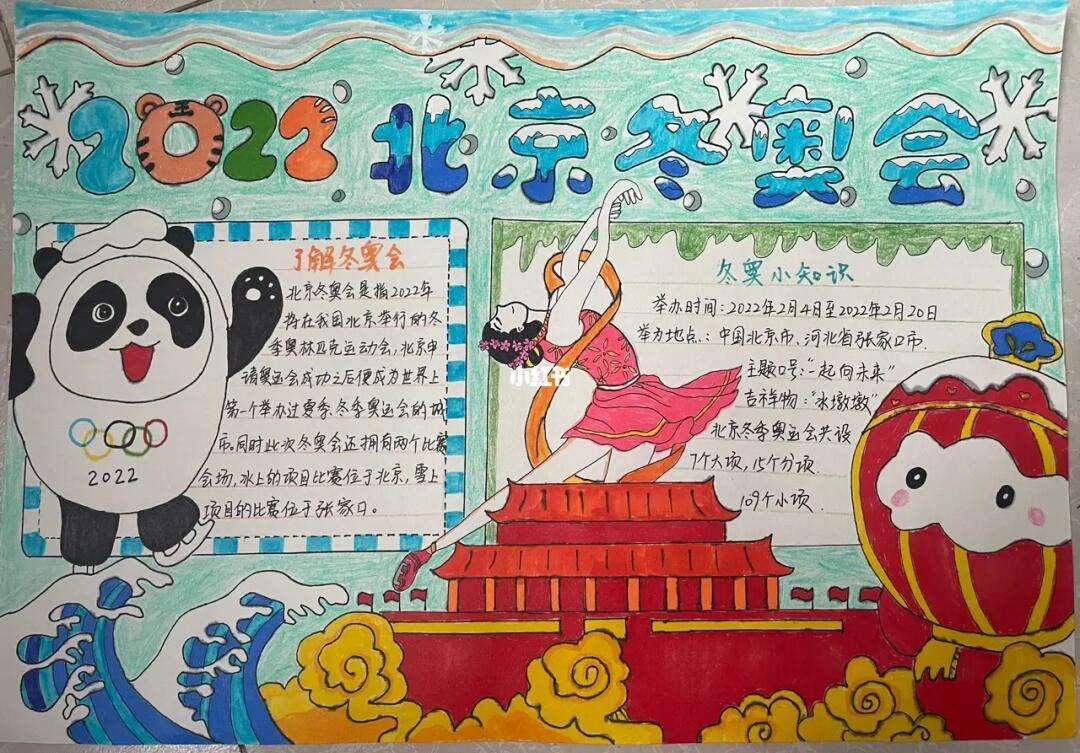 2022北京冬奥会
了解冬奥会
北京冬奥会是指2022年
将在我国北京举行的冬
季奥林匹克运动会,北京申
请奥运会成功之后便成为世界上
第一个举办过夏季、冬季奥运会的城
市。同时此次冬奥会还拥有两个比赛
会场,冰上的项目比赛位于北京,雪上
项目的比赛位于张家口。
王
2022
冬奥小知识
举办时间:2022年2月4日至2022年2月20日
举办地点:中国北京市、河北省张家口市
主题口号:“一起向未来”
吉祥物:“冰墩墩”
北京冬季奥运会共设
7个大项,15个分项.
109个小项.
小红书